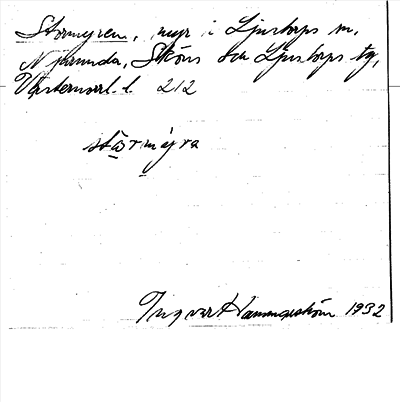 Stormyren, myr i Ljustorps sn,
Njurunda, Sköns och Ljustorps tg,
Västernorrl. l. 212
stormyra
Ingvar Hammarström 1932